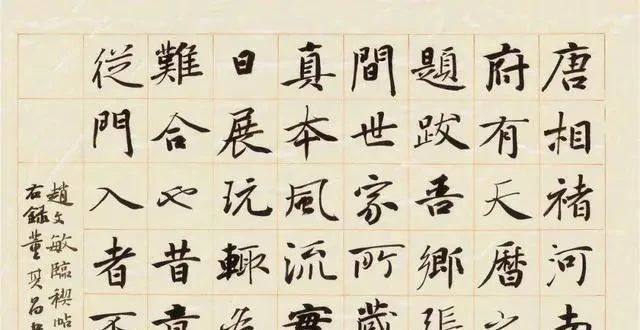 唐相褚河南
府有天曆之
題跋吾鄉張
間世家所藏
真本風流實
日展玩輙為
難合也昔章
從門入者不
趙文敏臨禊帖
右錄董其昌